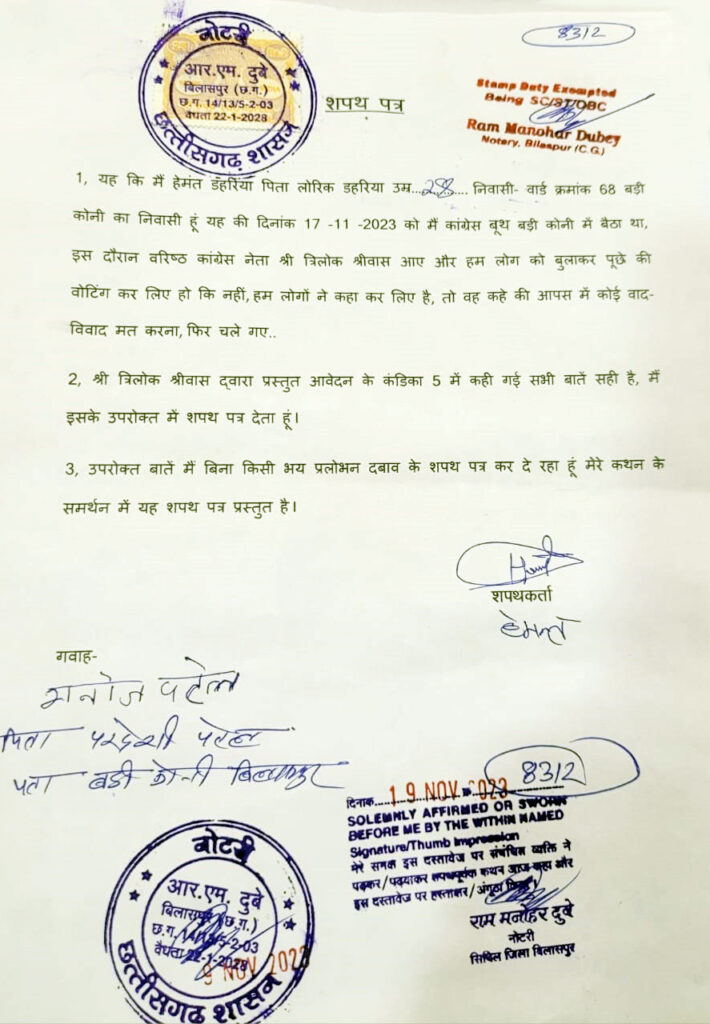 8312
नोटरी
आर.एम. दुबे
बिलासपुर (छ.ग.)
छ.ग. 14/13/5-2-03
वैधता 22-1-2028
छत्तीसगढ़ शासन
शपथ पत्र
Stamp Duty Exempted
Being SC/ST/OBC
Ram Manohar Dubey
Notary, Bilaspur (C.G.)
1, यह कि मैं हेमंत डहरिया पिता लोरिक डहरिया उम्र... ....निवासी- वार्ड क्रमांक 68 बड़ी
कोनी का निवासी हूं यह की दिनांक 17 -11 -2023 को मैं कांग्रेस बूथ बड़ी कोनी में बैठा था,
इस दौरान वरिष्ठ कांग्रेस नेता श्री त्रिलोक श्रीवास आए और हम लोग को बुलाकर पूछे की
वोटिंग कर लिए हो कि नहीं, हम लोगों ने कहा कर लिए है, तो वह कहे की आपस में कोई वाद-
विवाद मत करना, फिर चले गए..
2, श्री त्रिलोक श्रीवास द्वारा प्रस्तुत आवेदन के कंडिका 5 में कही गई सभी बातें सही है, मैं
इसके उपरोक्त में शपथ पत्र देता हूं।
3, उपरोक्त बातें मैं बिना किसी भय प्रलोभन दबाव के शपथ पत्र कर दे रहा हूं मेरे कथन के
समर्थन में यह शपथ पत्र प्रस्तुत है।
शपथकर्ता
हेमन्त
गवाह-
मनोज पटेल
पिता परदेशी पटेल
पता बड़ी कोनी बिलासपुर
8312
दिनांक 19 NOV 2023
SOLEMNLY AFFIRMED OR SWORN
BEFORE ME BY THE WITHIN NAMED
Signature/Thumb Impression
मेरे समक्ष इस दस्तावेज पर संबंधित व्यक्ति ने
पढ़कर/पढ़वाकर शपथपूर्वक कथन आज कहा और
इस दस्तावेज पर हस्ताक्षर/अंगूठा
राम मनोहर दुबे
नोटरी
सिविल जिला बिलासपुर
नोटरी
आर.एम. दुबे
बिलासपुर (छ.ग.)
छ.ग. 14/13/5-2-03
वैधता 22-1-2028
9 NOV 2023
छत्तीसगढ़ शासन